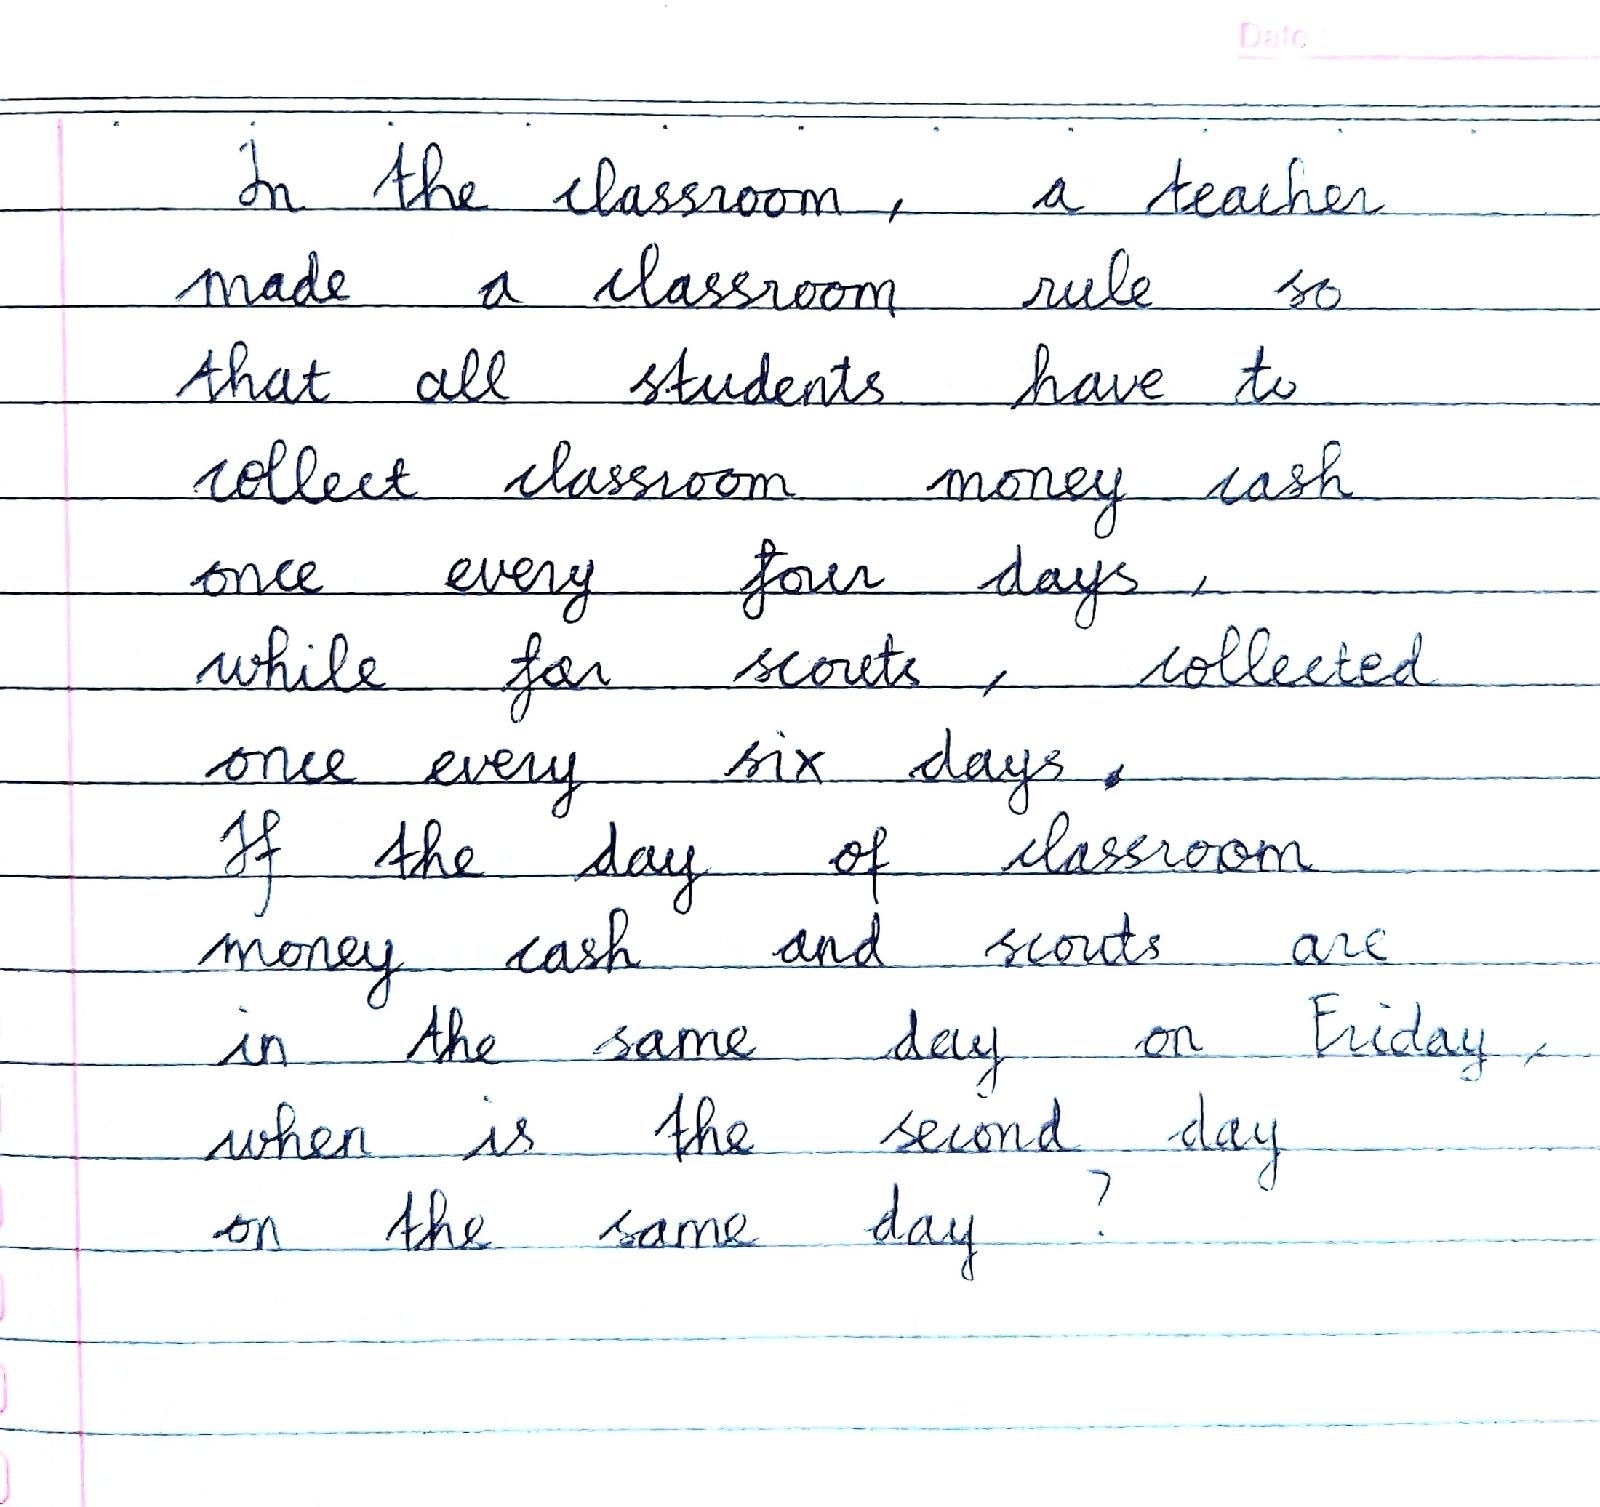 Date :
In the classroom, a teacher
made a classroom rule so
that all students have to
collect classroom money cash
once every four days,
while for scouts, collected
once every six days.
If the day of classroom
money cash and scouts are
in the same day on Friday,
when is the second day
on the same day ?